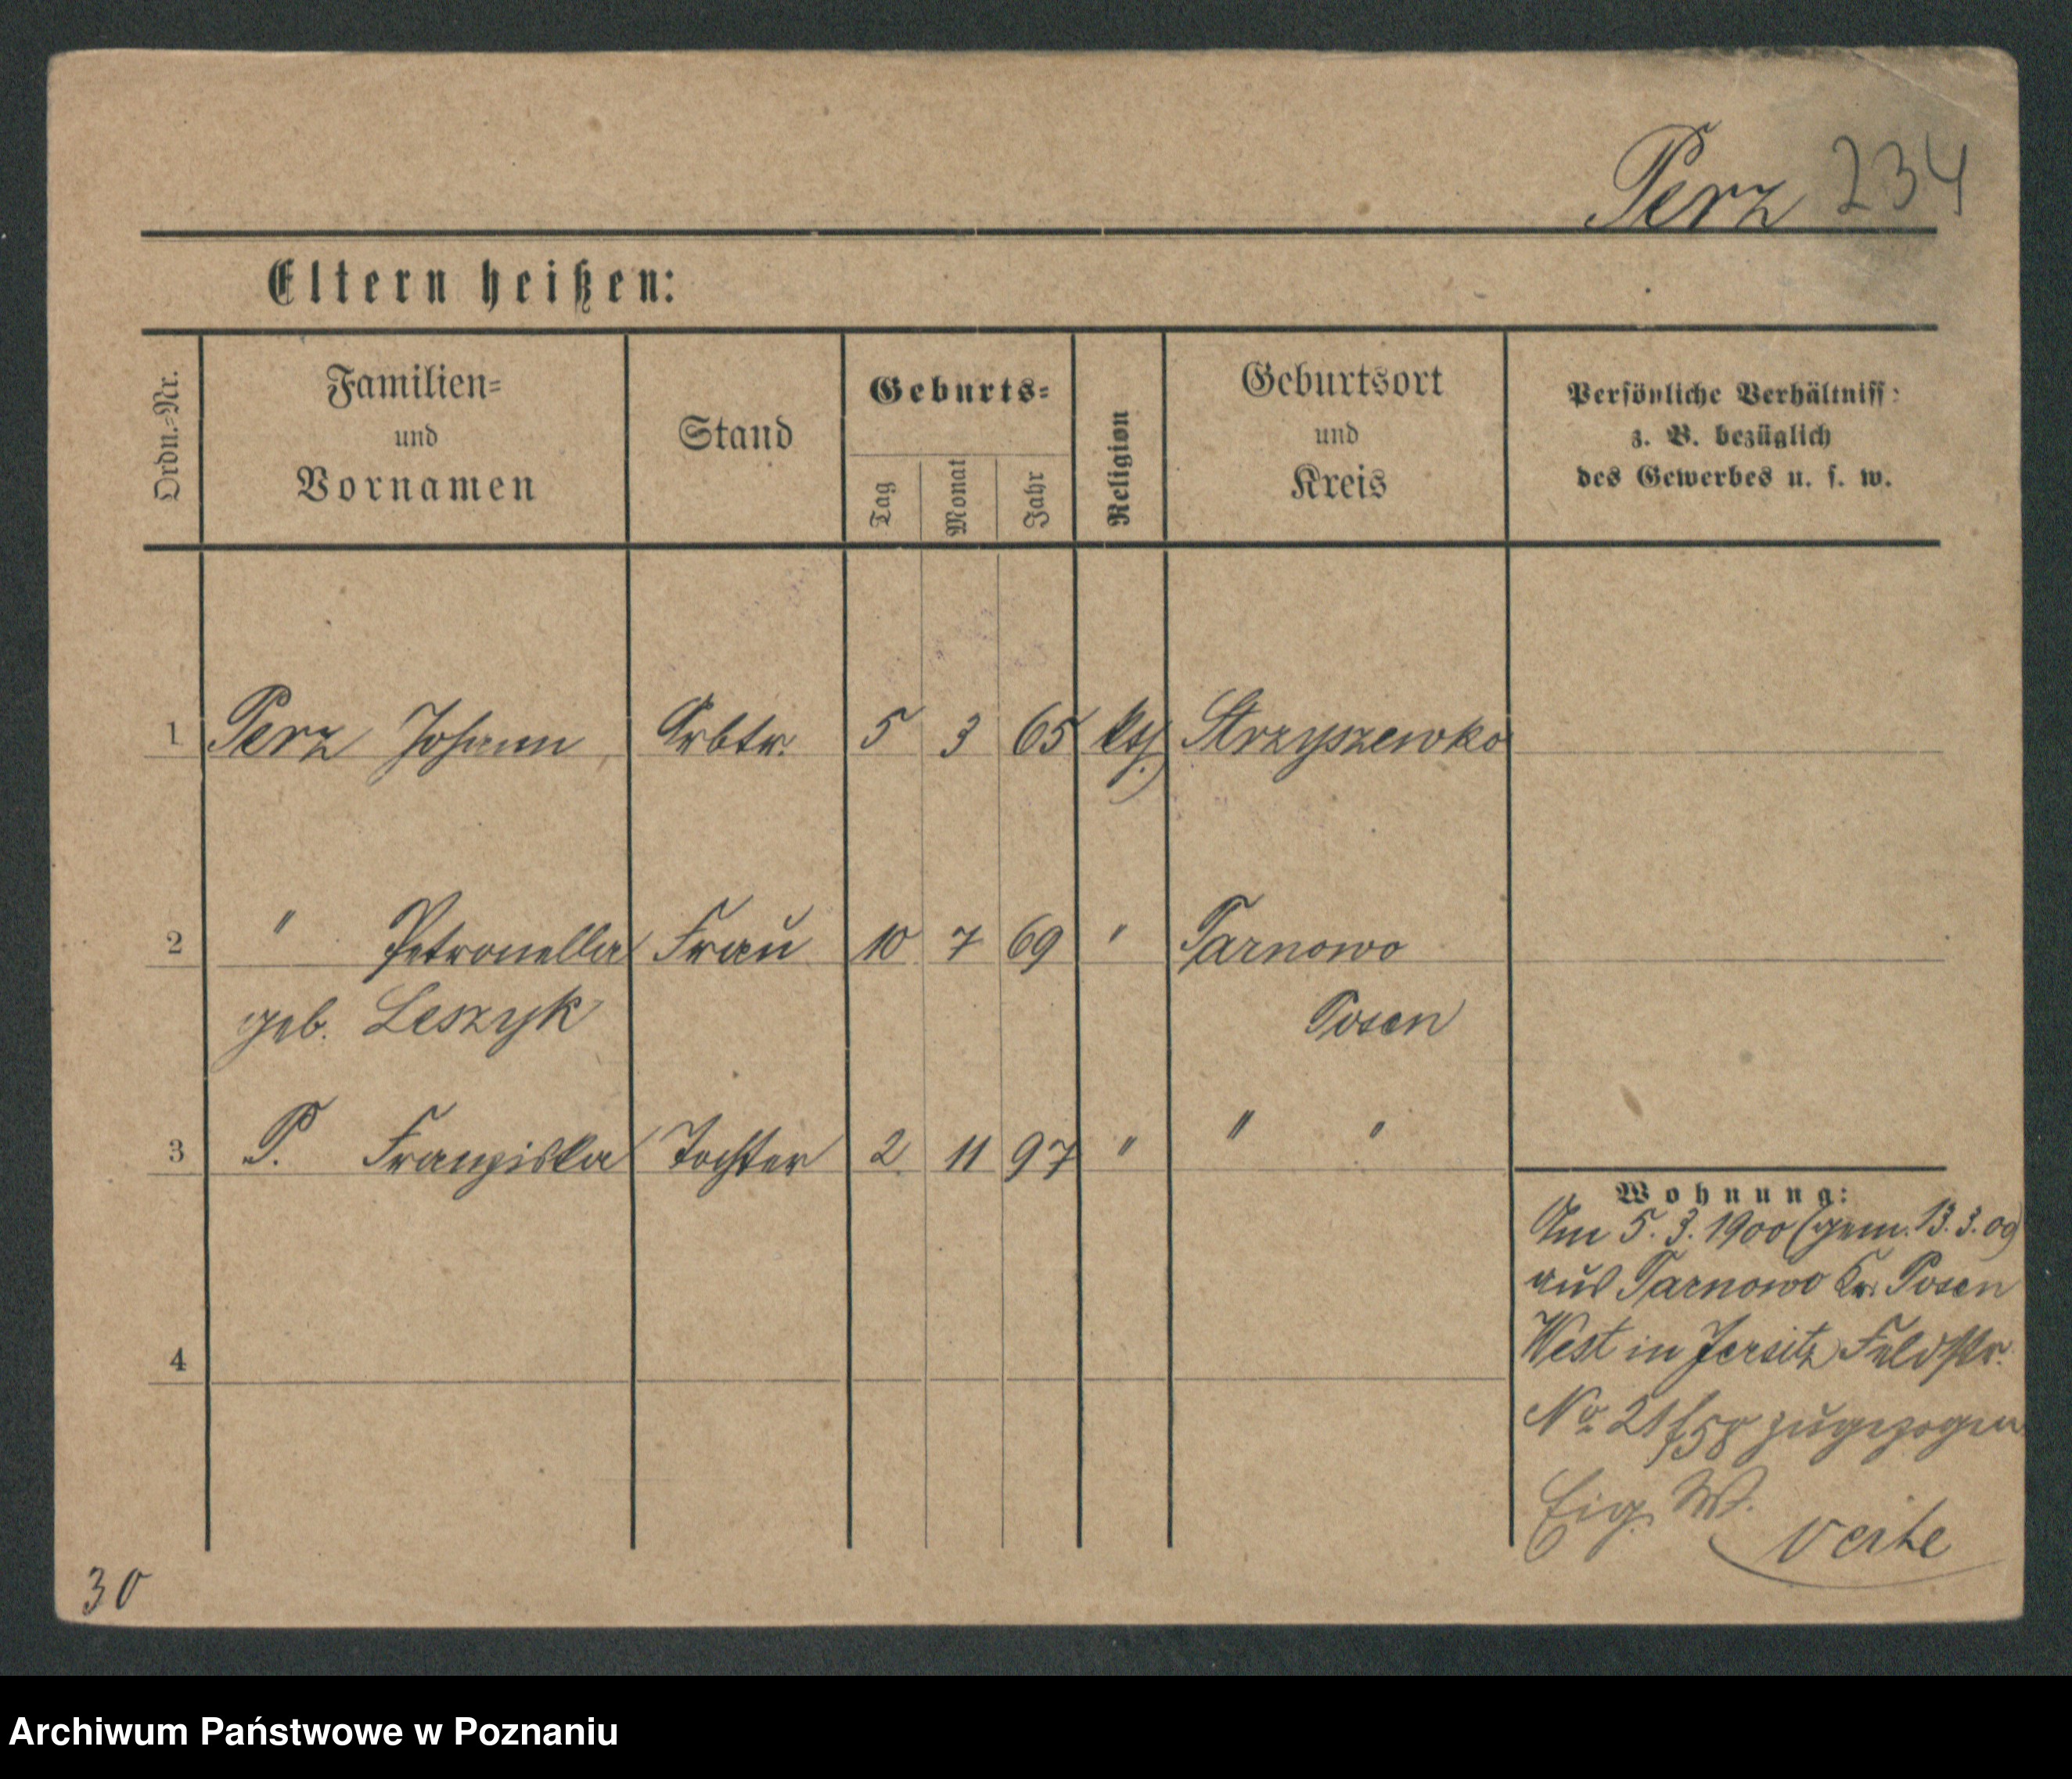 Perz 234
Eltern heißen:
Ordn.=Nr.
Familien=
und
Vornamen
Stand
Geburts=
Tag
Monat
Jahr
Religion
Geburtsort
und
Kreis
Persönliche Verhältniss:
z. B. bezüglich
des Gewerbes u. s. w.
1 Perz Johann Arbtr. 5 3 65 kth Strzyszewko
2 " Petronella Frau 10 7 69 " Tarnowo
geb. Leszyk Posen
3 P. Franziska Tochter 2 11 97 " " "
Wohnung:
Am 5. 3. 1900 (gem. 13. 3. 00)
aus Tarnowo Kr. Posen
West in Jersitz Feldstr.
4
No 21/58 zugezogen
Eig. W.
30
Archiwum Państwowe w Poznaniu